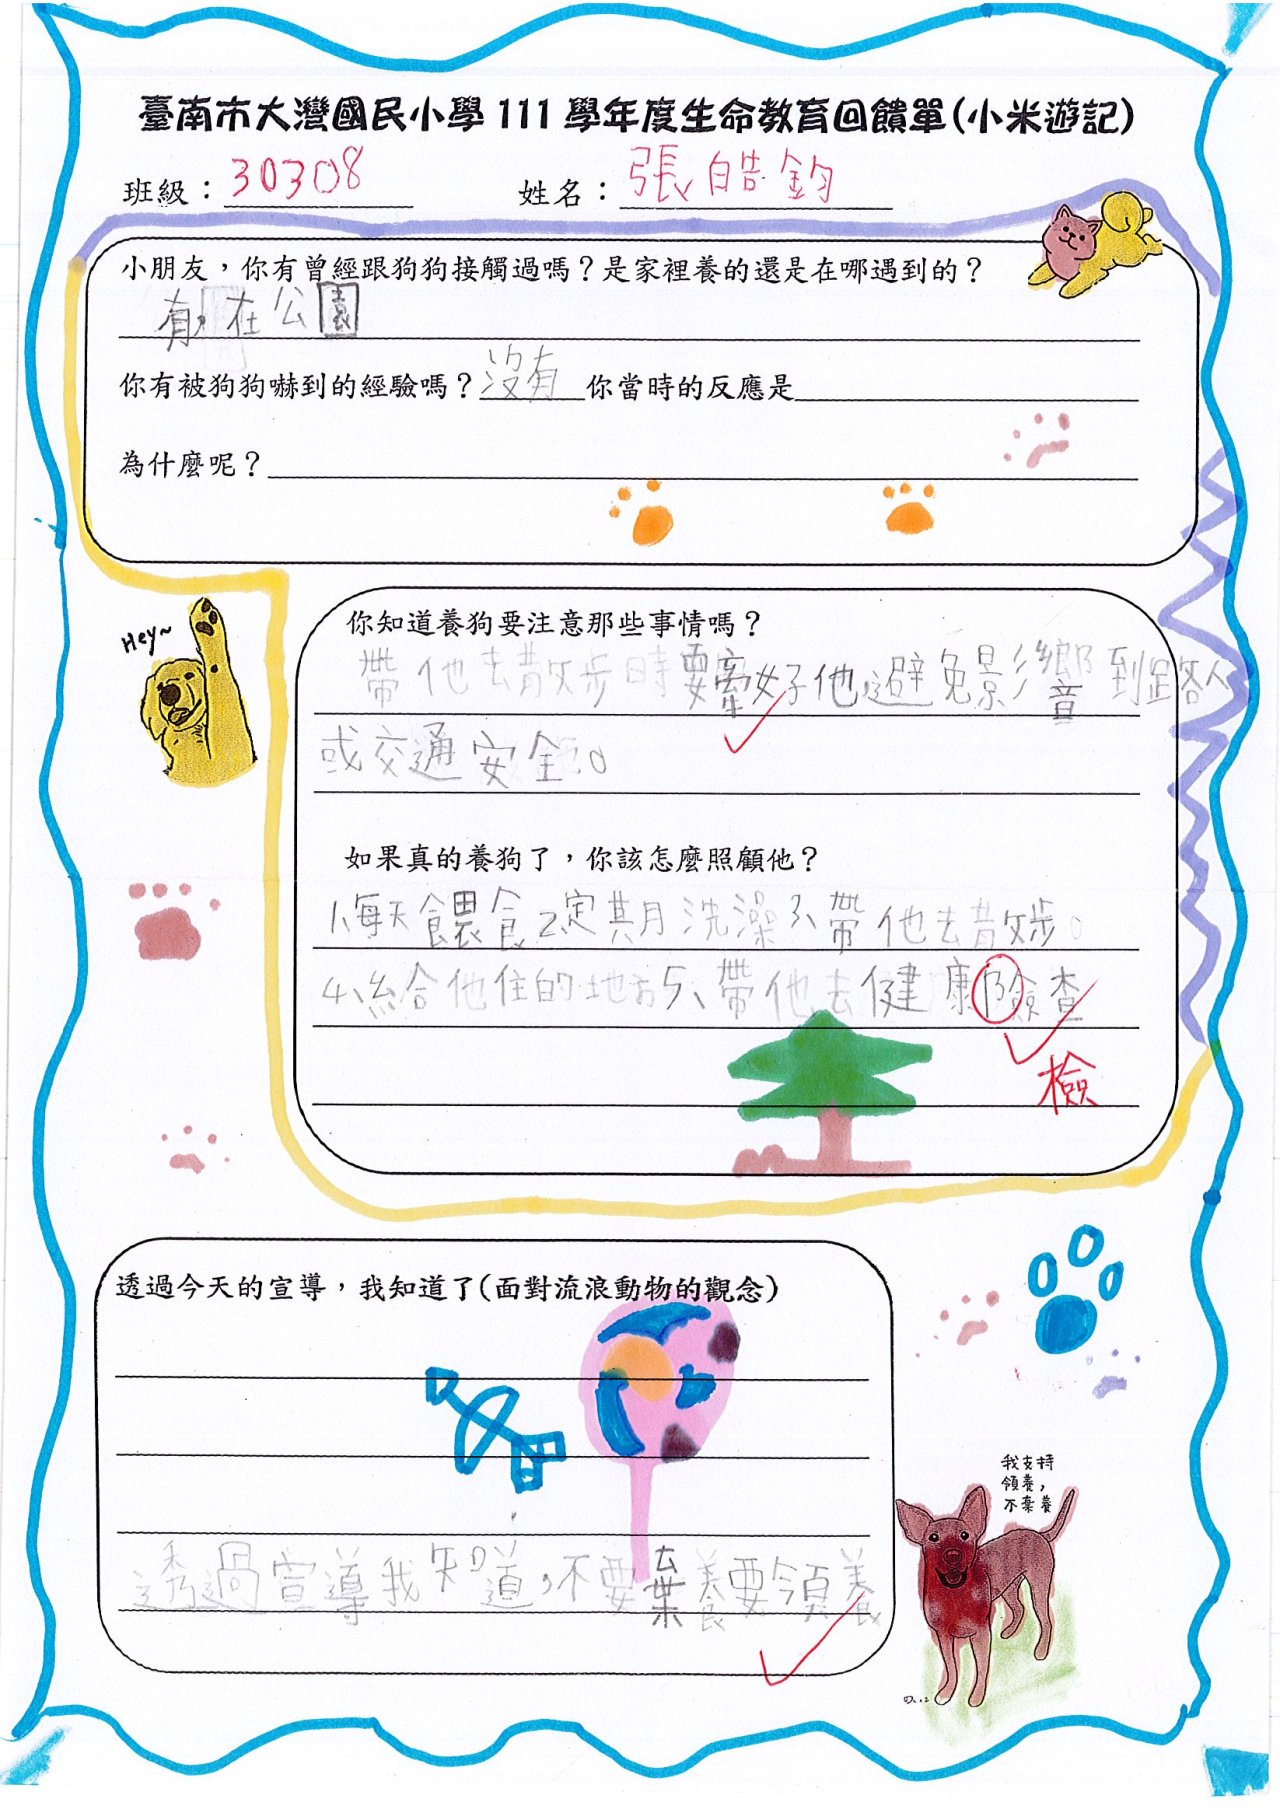 臺南市大灣國民小學 111 學年度生命教育回饋單(小米遊記)
班級：30308 姓名：張皓鈞
小朋友，你有曾經跟狗狗接觸過嗎？是家裡養的還是在哪遇到的？
有，在公園
你有被狗狗嚇到的經驗嗎？沒有 你當時的反應是
為什麼呢？
Hey~
你知道養狗要注意那些事情嗎？
帶他去散步時要牽好他，避免影響到路人
或交通安全。
如果真的養狗了，你該怎麼照顧他？
1、每天餵食2、定其月洗澡3、帶他去散步。
4、給他住的地方5、帶他去健康險查
檢
透過今天的宣導，我知道了(面對流浪動物的觀念)
透過宣導我知道，不要棄養要領養
我支持
領養，
不棄養